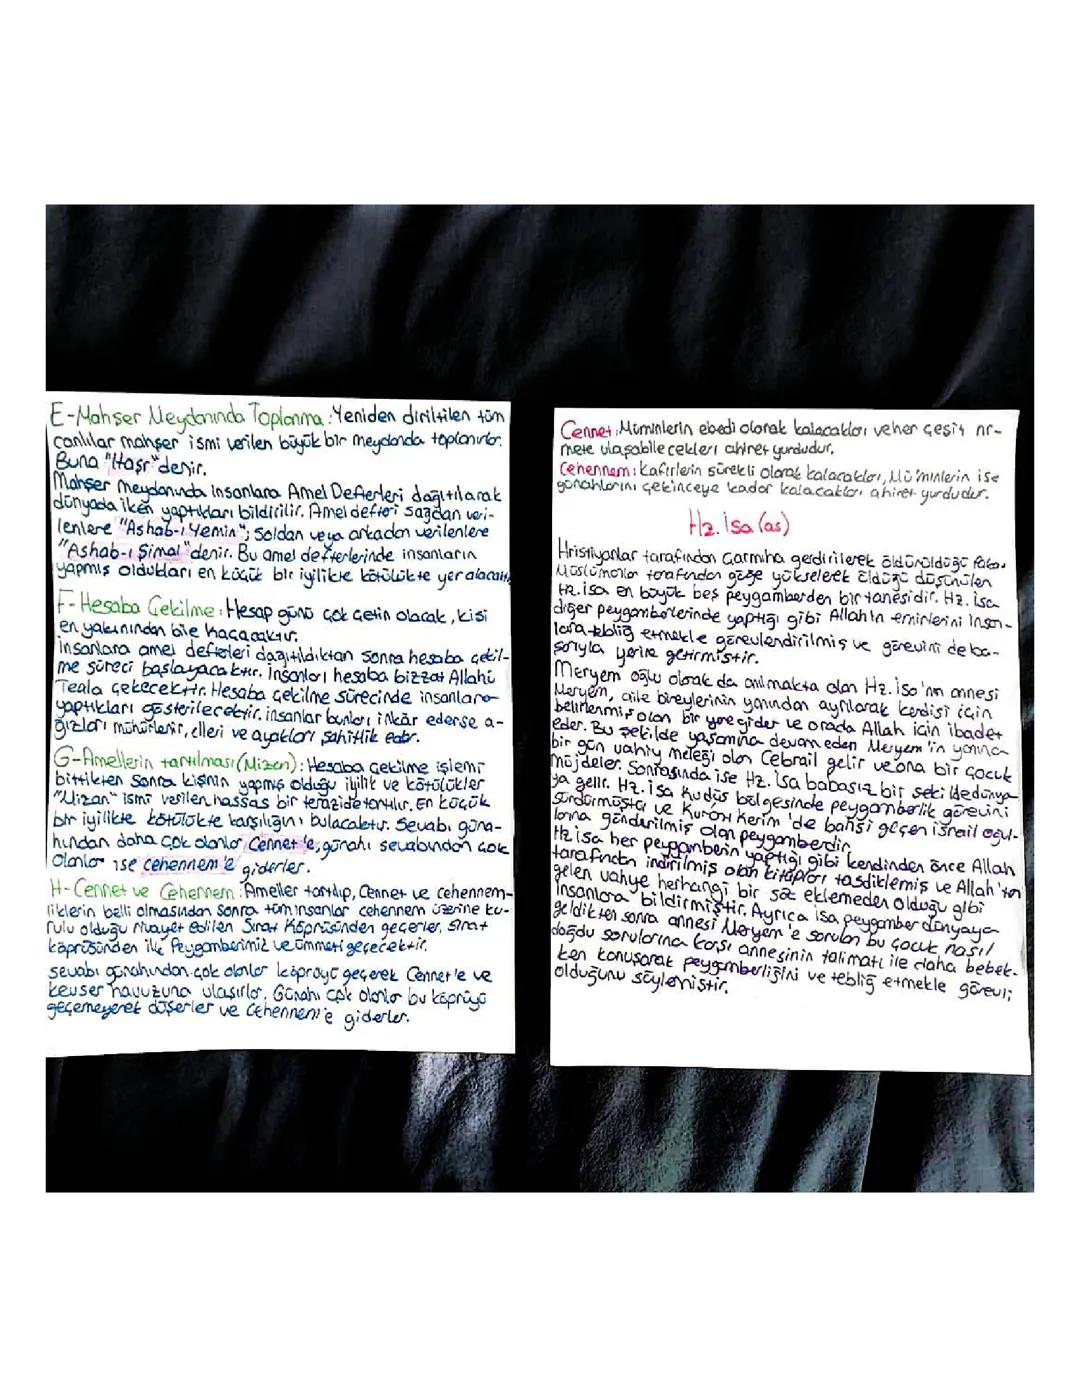 E-Mahşer Meydanında Toplanma: Yeniden diriltilen tüm
canlılar mahşer ismi verilen büyük bir meydanda toplanırlar.
Buna "Haşr" denir.
Mahşer meydanında insanlara Amel Defterleri dağıtılarak
dünyada iken yaptıkları bildirilir. Amel defteri sağdan veri-
lenlere "Ashab-ı Yemin"; Soldan veya arkadan verilenlere
"Ashab-ı Şimal" denir. Bu amel defterlerinde insanların
yapmış oldukları en küçük bir iyilikte kötülükte yer alacaktı
F-Hesaba Çekilme: Hesap günü çok çetin olacak, kişi
en yakınından bile kaçacaktır.
insanlara amel defterleri dağıtıldıktan sonra hesaba çekil-
me süreci başlayacaktır. İnsanları hesaba bizzat Allahü
Teala çekecektir. Hesaba çekilme sürecinde insanlara
yaptıkları gösterilecektir. insanlar bunları inkâr ederse a-
ğızları mühürlenir, elleri ve ayakları şahitlik eder.
G-Amellerin tartılması (Mizan): Hesaba çekilme işlemi
bittikten sonra kişinin yapmış olduğu iyilik ve kötülükler
"Mizan" ismi verilen hassas bir terazide tartılır. En küçük
bir iyilikte kötülükte karşılığını bulacaktır. Sevabı güna-
hından daha çok olanlar Cennet'e, günahı sevabından çok
olanlar ise cehennem'e giderler.
H-Cennet ve Cehennem: Ameller tartılıp, Cennet ve cehennem-
liklerin belli olmasından sonra tüm insanlar cehennem üzerine ku-
rulu olduğu rivayet edilen Sırat Köprüsünden geçerler. Sırat
köprüsünden ilk Peygamberimiz ve ümmeti geçecektir.
sevabı günahından çok olanlar köprüyü geçerek Cennet'e ve
kevser havuzuna ulaşırlar. Günahı çok olanlar bu köprüyü
geçemeyerek düşerler ve Cehennem'e giderler.
Cennet: Müminlerin ebedi olarak kalacakları ve her çeşit ni-
mete ulaşabilecekleri ahiret yurdudur.
Cehennem: Kafirlerin sürekli olarak kalacakları, Mü'minlerin ise
günahlarını çekinceye kadar kalacakları ahiret yurdudur.
Hz. İsa (as)
Hristiyanlar tarafından Çarmıha gerdirilerek öldürüldüğü fakat
Müslümanlar tarafından göğe yükselerek öldüğü düşünülen
Hz. isa en büyük beş peygamberden bir tanesidir. Hz. isa
diğer peygamberlerinde yaptığı gibi Allahın emirlerini insan-
lara tebliğ etmekle görevlendirilmiş ve görevini de ba-
şarıyla yerine getirmiştir.
Meryem oğlu olarak da anılmakta olan Hz. İsa'nın annesi
Meryem, aile bireylerinin yanından ayrılarak kendisi için
belirlenmiş olan bir yere gider ve orada Allah için ibadet
eder. Bu şekilde yaşamına devam eden Meryem'in yanına
bir gün vahiy meleği olan Cebrail gelir ve ona bir çocuk
müjdeler. Sonrasında ise Hz. İsa babasız bir şekilde dünya-
ya gelir. Hz. İsa Kudüs bölgesinde peygamberlik görevini
sürdürmüştür ve Kuran Kerim'de bahsi geçen israil oğul-
larına gönderilmiş olan peygamberdir.
Hz isa her peygamberin yaptığı gibi kendinden önce Allah
tarafından indirilmiş olan kitapları tasdiklemiş ve Allah'tan
gelen vahye herhangi bir söz eklemeden olduğu gibi
insanlara bildirmiştir. Ayrıca isa peygamber dünyaya
geldikten sonra annesi Meryem'e sorulan bu çocuk nasıl
doğdu sorularına karşı annesinin talimatı ile daha bebek-
ken konuşarak peygamberliğini ve tebliğ etmekle görevli
olduğunu söylemiştir.